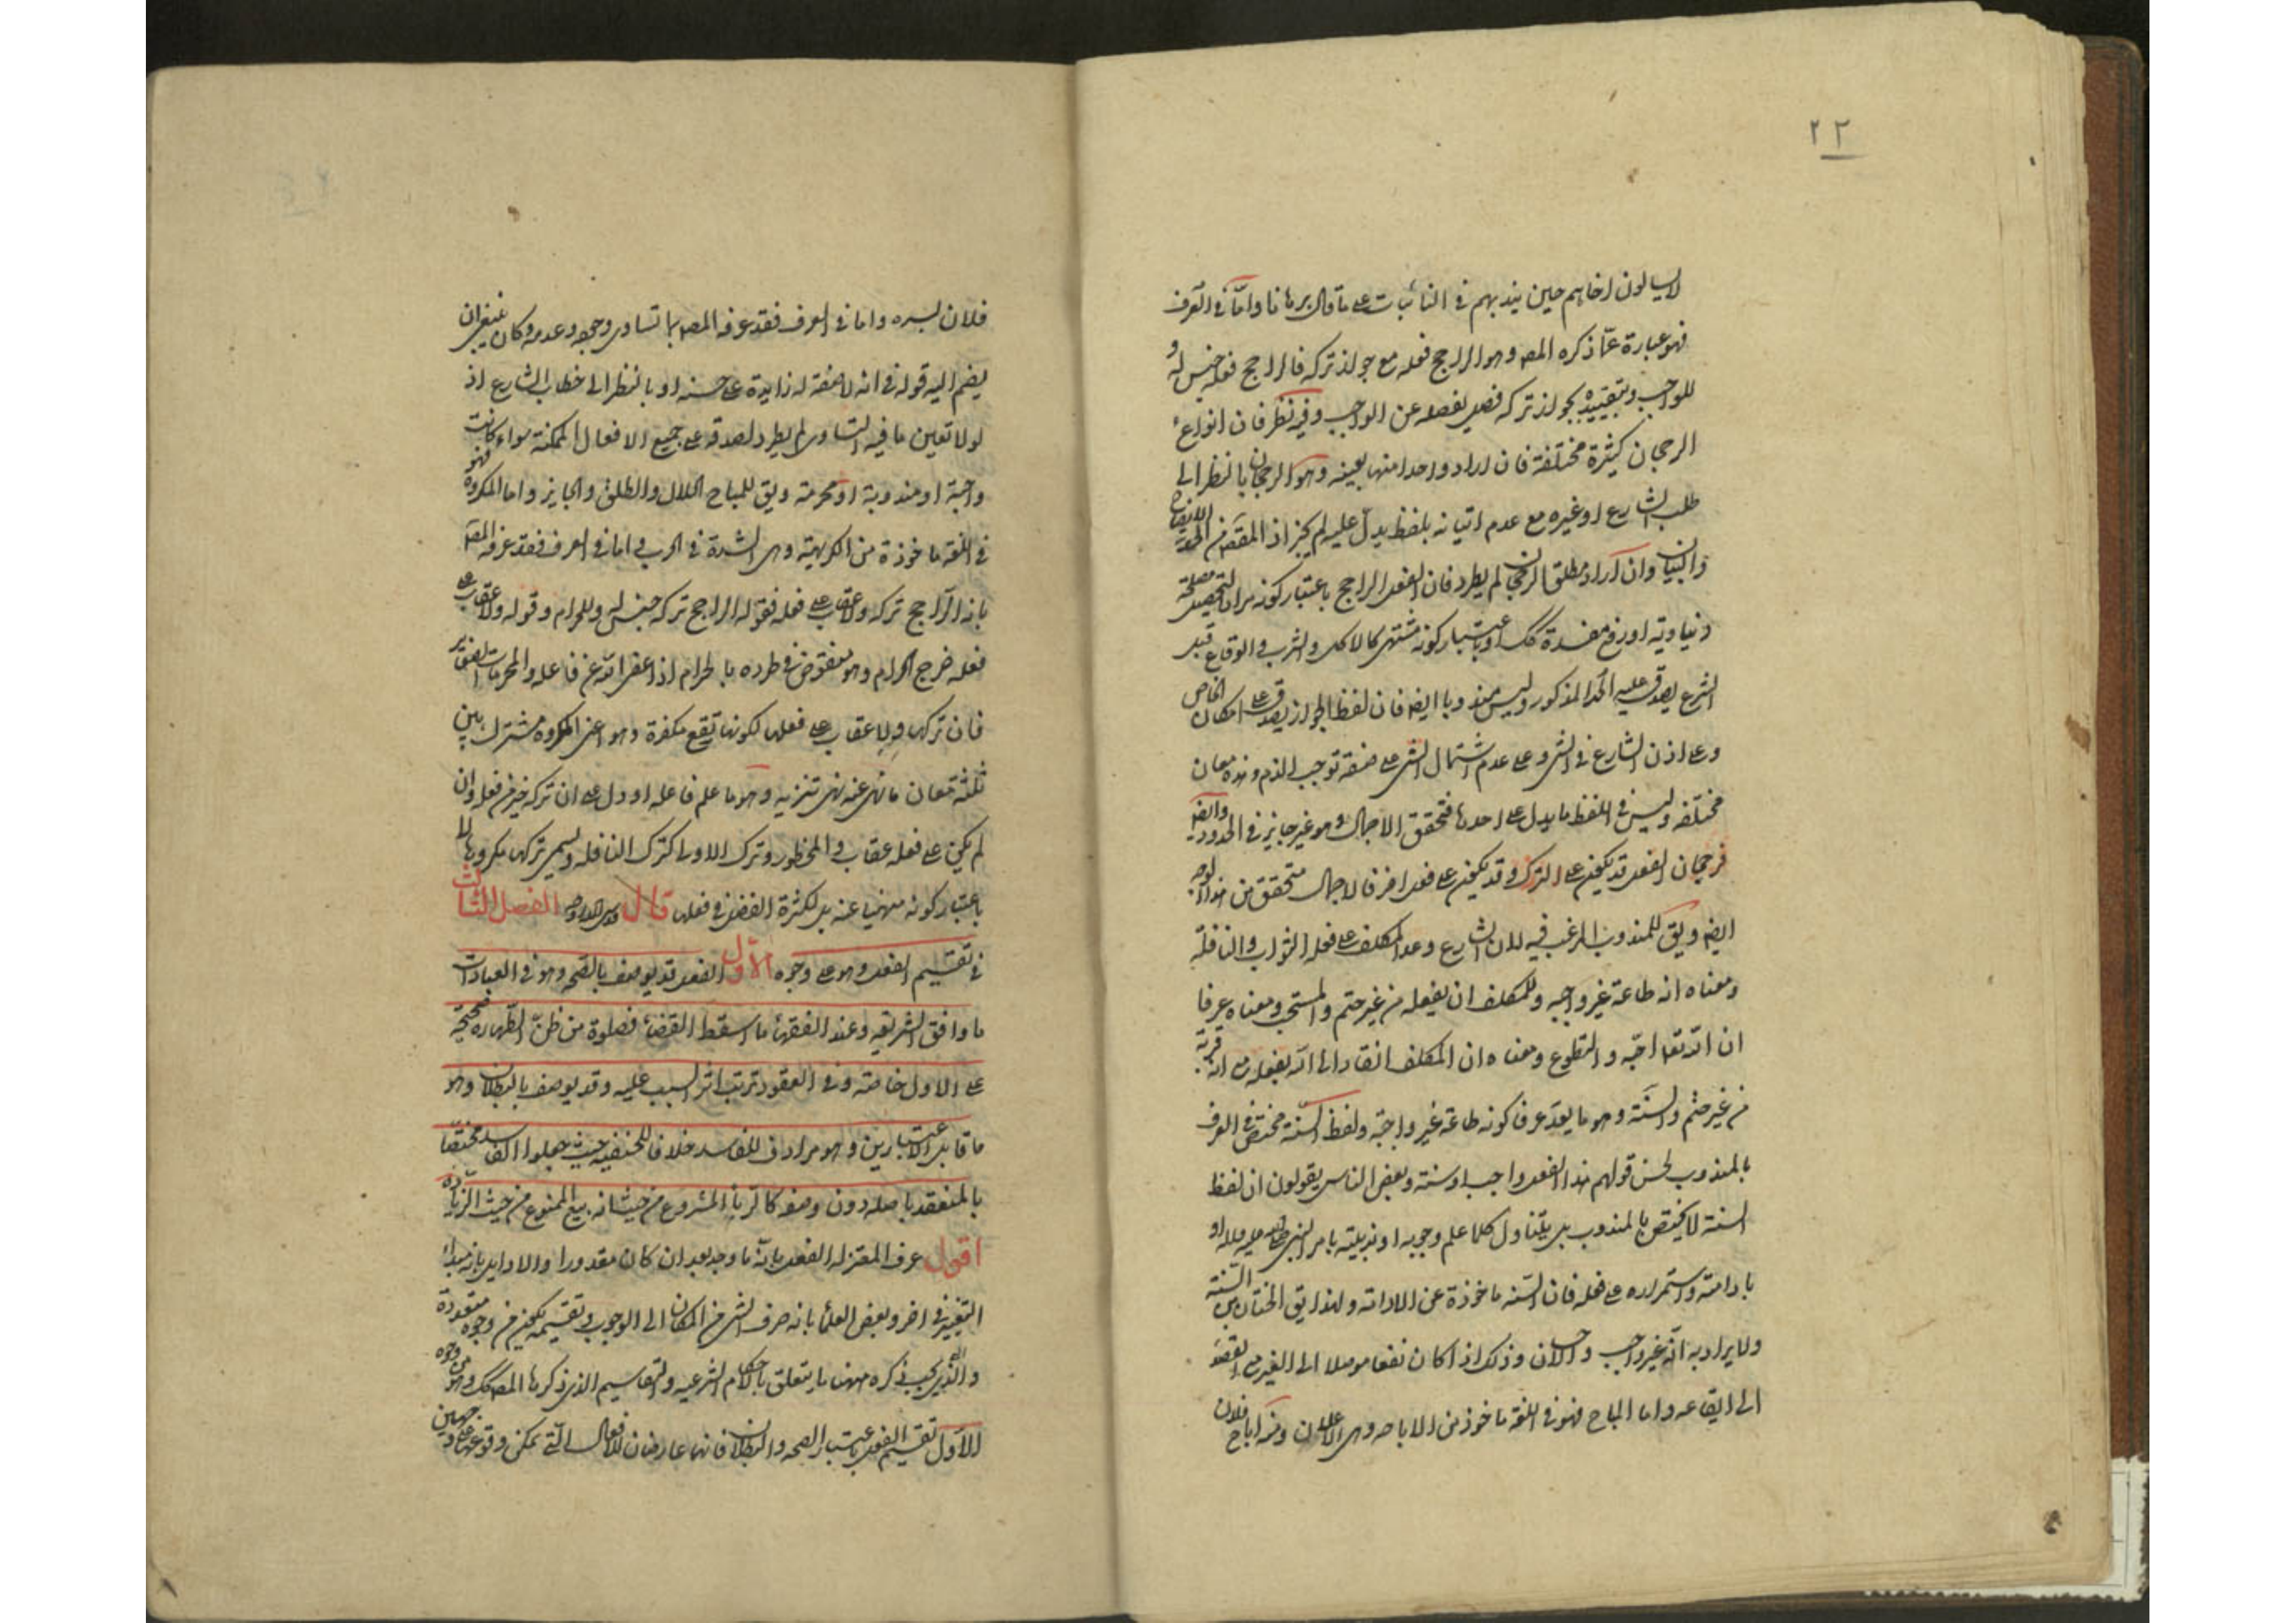 ٢٢
لا يسالون اخاهم حين يندبهم في النائبات على ما قال برهانا واما في العرف
فهو عبارة عما ذكره المص وهو الراجح فعله مع جواز تركه فالراجح فعله جنس له و
للواجب وتقييده بجواز تركه فصل يفصله عن الواجب وفيه نظر فان انواع
الرجحان كثيرة مختلفة فان اراد واحدا منها بعينه وهو الرجحان بالنظر الى
طلب الشارع او غيره مع عدم اتيانه بلفظ يدل عليه لم يجز اذ المقصود من الحد الايضاح
والبيان وان اراد مطلق الرجحان لم يطرد فان الفعل الراجح باعتبار كونه مرادا لتحصيل مصلحة
دنياوية او رفع مفسدة كك او باعتبار كونه مشتهى كالاكل والشرب والوقاع قبل
الشرع يصدق عليه الحد المذكور وليس مندوبا ايضا فان لفظ الجواز يصدق على امكان الخاص
وعلى اذن الشارع في الشئ وعلى عدم اشتمال الشئ على صفة توجب الذم وهذه معان
مختلفة وليس في اللفظ ما يدل على احدها فتحقق الاجمال وهو غير جايز في الحدود وايضا
فرجحان الفعل قد يكون على الترك وقد يكون على فعل اخر فالاجمال متحقق من هذا الوجه
ايضا ويق للمندوب المرغب فيه لان الشارع وعد المكلف على فعله الثواب والنافلة
ومعناه انه طاعة غير واجبه وللمكلف ان يفعله من غير حتم والمستحب ومعناه عرفا
ان الله تعا احبه والتطوع ومعناه ان المكلف انقاد الى الله بفعله مع انه قربة
من غير حتم والسنة وهو ما يعد عرفا كونه طاعة غير واجبة ولفظ السنة مختص في العرف
بالمندوب لحسن قولهم هذا الفعل واجب او سنة وبعض الناس يقولون ان لفظ
السنة لا يختص بالمندوب بل يتناول كلما علم وجوبه او ندبيته بامر النبي صلى الله عليه واله او
بادامته واستمراره على فعله فان السنة ماخوذة عن الادامة ولهذا يق الختان من السنة
ولا يراد به انه غير واجب والاحسان وذلك اذا كان نفعا موصلا الى الغير مع القصد
الى ايقاعه واما المباح فهو في اللغة ماخوذ من الاباحه وهي الاعلان ومنه اباح فلان
فلان بسره واما في العرف فقد عرفه المص بما تساوى وجوده وعدمه وكان ينبغي ان
يضم اليه قوله في انه لا صفة له زايدة على حسنه او بالنظر الى خطاب الشارع اذ
لولا تعين ما فيه التساوى لم يطرد لصدقه على جميع الافعال الممكنة سواء كانت
واجبة او مندوبة او محرمة ويق للمباح الحلال والطلق والجايز واما المكروه فهو
في اللغة ماخوذة من الكريهة وهي الشدة في الحرب واما في العرف فقد عرفه المص
بانه الراجح تركه ولا عقاب على فعله فقوله الراجح تركه جنس له وللحرام وقوله ولا عقاب على
فعله خرج الحرام وهو منقوض في طرده بالحرام اذا عفى الله عن فاعله والمحرمات الصغاير
فان تركها ولا عقاب على فعلها لكونها تقع مكفرة وهو اعنى المكروه مشترك بين
ثلثة معان ما نهى عنه نهى تنزيه وهو ما علم فاعله او دل على ان تركه خير من فعله وان
لم يكن على فعله عقاب والمحظور وترك الاولى كترك النافله ويسمى تركها مكروها لا
باعتبار كونه منهيا عنه بل لكثرة الفضل في فعلها قال قدس الله روحه الفصل الثالث
في تقسيم الفعل وهو على وجوه الاول الفعل قد يوصف بالصحه وهو في العبادات
ما وافق الشريعه وعند الفقهاء ما اسقط القضاء فصلوة من ظن الطهارة صحيحة
على الاول خاصة وفي العقود ترتب اثر السبب عليه وقد يوصف بالبطلان وهو
ما قابل الاعتبارين وهو مرادف للفاسد خلافا للحنفيه حيث جعلوا الفاسد مختصا
بالمنعقد باصله دون وصفه كالربا المشروع من حيث انه بيع الممنوع من حيث الزيادة
اقول عرف المعتزله الفعل بانه ما وجد بعد ان كان مقدورا والاوايل بانه مبدا
التغير في اخر وبعض العلماء بانه صرف الشئ من الامكان الى الوجوب وتقسيمه يمكن من وجوه متعددة
والذي يجب ذكره ههنا ما يتعلق بالاحكام الشرعيه والتقاسيم الذي ذكرها المص كك وهو من وجوه
الاول تقسيم الفعل باعتبار الصحه والبطلان فانهما عارضان للافعال التي يمكن وقوعها على وجهين